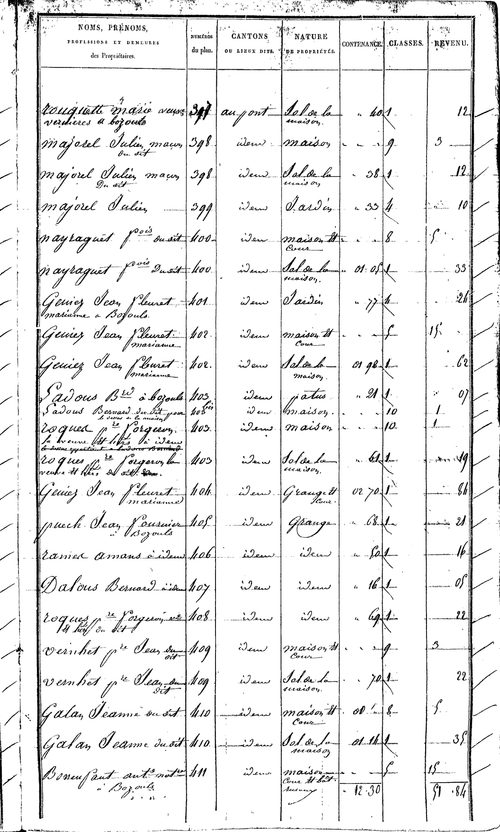 NOMS, PRÉNOMS, PROFESSIONS ET DEMEURES des Propriétaires. numéro du plan. CANTONS OU LIEUX DITS. NATURE DE PROPRIÉTÉ. CONTENANCE. CLASSES. REVENU.
rouquette marie veuve 397 au pont Sol de la " 40 1 12
verdieres a bozouls maison
majorel Julien maçon 398 idem maison 9 3
du dit
majorel Julien maçon 398 idem Sol de la " 38 1 12
Du dit maison
majorel Julien 399 idem Jardin " 33 4 10
nayraguet fois du dit 400 idem maison et 8 5
cour
nayraguet fois du dit 400 idem Sol de la 01 05 1 33
maison
Geniez Jean fleuret 401 idem Jardin " 77 4 26
marianne a Bozouls
Geniez Jean fleuret 402 idem maison et 5 15
marianne cour
Geniez Jean fleuret 402 idem Sol de la 01 98 1 62
marianne maison
Ladous Brd a bozouls 403 idem patus " 21 1 07
Ladous Bernard du dit 403 bis idem maison 10 1
roques pre forgeron 403 idem maison 10 1
la veuve et hers a idem
roques pre forgeron la 403 idem Sol de la " 61 1 19
veuve et hers maison
Geniez Jean fleuret 404 idem Grange et 02 70 1 84
marianne cour
puech Jean 405 idem Grange " 68 1 21
a Bozouls
ramed amans a idem 406 idem idem " 50 1 16
Dalous Bernard a idem 407 idem idem " 16 1 05
roques pre forgeron 408 idem idem " 69 1 22
et hers du dit
vernhet pre Jean du 409 idem maison et 9 3
dit cour
vernhet pre Jean du 409 idem Sol de la " 70 1 22
dit maison
Galan Jeanne du dit 410 idem maison et 8 5
cour
Galan Jeanne du dit 410 idem Sol de la 01 14 1 35
maison
Bonnefant ante 411 idem maison 5 15
a Bozouls cour et
12.30 51.84